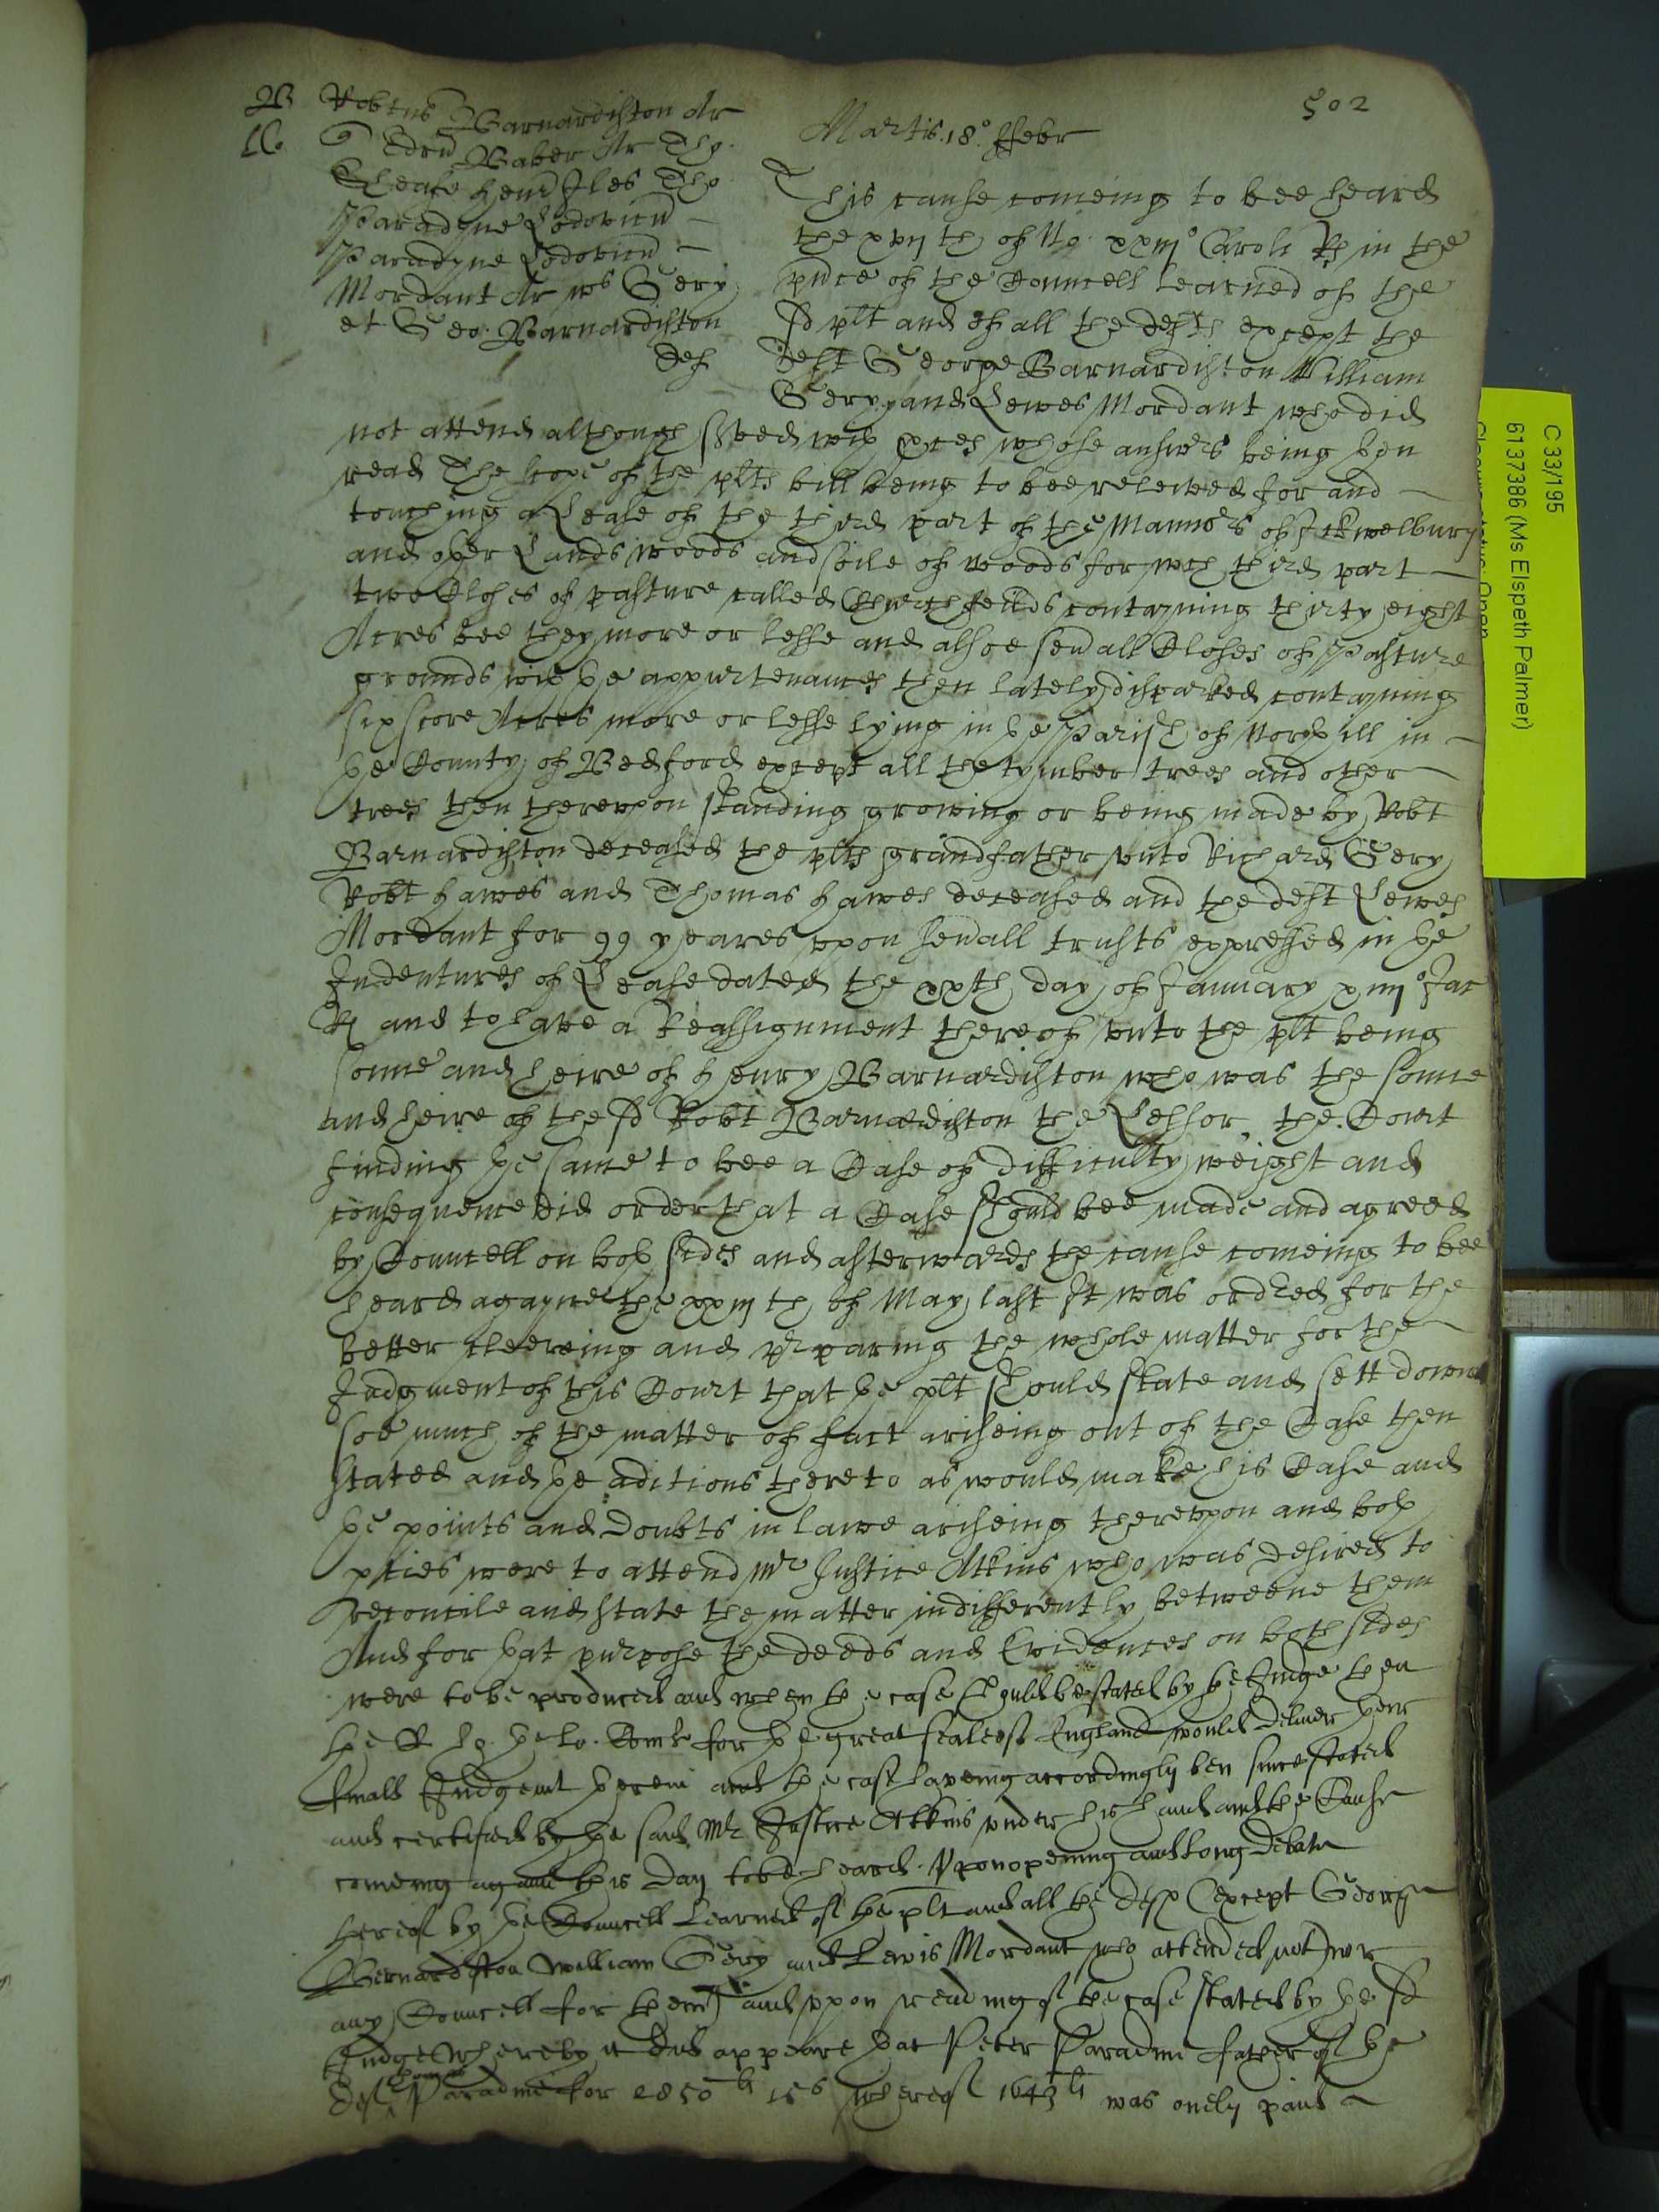 502
B Robtus Barnardiston Ar
Edru Baber Ar Tho.
Sheafe Henr Iles Tho
Paradyne Lodovicu
Paradyne Lodovicu
Mordant Ar ws Gery
et Geo. Barnardiston
def
Martis. 18° ffebr
This cause comeing to bee heard
the xxvijth of No. xxiij° Caroli Rs in the
pnce of the Councell learned of the
sd plt and of all the defts except the
deft George Barnardiston William
Gery and Lewes Mordant who did
not attend although served with pces whose answers being then
read The scope of the plts bill being to bee releived for and
touching a Lease of the third part of the Mannors of Ickwelbury
and other Lands woods and soile of woods for wch third part
two Closes of pasture called Church feilds contayning thirty eight
Acres bee they more or lesse and alsoe sevall Closes of Pasture
grounds with ye appurtenances then lately disparked contayning
six score Acres more or lesse lying in ye Parish of Northill in
ye County of Bedford except all the tymber trees and other
trees then thereupon standing growing or being made by Robt
Barnardiston deceased the plts grandfather unto Richard Gery
Robt hawes and Thomas hawes deceased and the deft Lewes
Mordant for 99 yeares upon sevall trusts expressed in ye
Indentures of Lease dated the xxth day of January xiiij° Jac
R and to have a Reassignment thereof unto the plt being
sonne and heire of Henry Barnardiston who was the sonne
and heire of the sd Robt Barnardiston the Lessor, the Court
finding ye same to bee a Case of difficulty weight and
consequence did order that a Case should bee made and agreed
by Councell on both sides and afterwards the cause comeing to bee
heard agayne the xxiijth of May last It was ordred for the
better cleereing and pparing the whole matter for the
Judgment of this Court that ye plt should state and sett downe
soe much of the matter of fact ariseing out of the Case then
stated and ye aditions thereto as would make his Case and
ye points and doubts in lawe ariseing thereupon and both
pties were to attend Mr Justice Atkins who was desired to
reconcile and state the matter indifferently betweene them
And for that purpose the deeds and Evidences on both sides
were to be produced and when the case should be stated by ye Judge then
the R. ho. ye lo. Comrs for ye great seale of England would deliver their
finall Judgemt therein and the case haveing accordingly ben since stated
and certified by ye said Mr Justice Atkins under his hand and the Cause
comeing againe this day to bee heard. Upon opening and long debate
thereof by ye Councell learned of the plt and all the defts (except George
Bernardiston William Gery and Lewis Mordant who attended not nor
any Councell for them) and uppon reading of the case stated by ye sd
Judge Whereby it did appeare that Peter Paradine father of ye
deft Thomas Paradine for 2850li 15s whereof 1643li was onely paid
C 33/195
6137386 (Ms Elspeth Palmer)